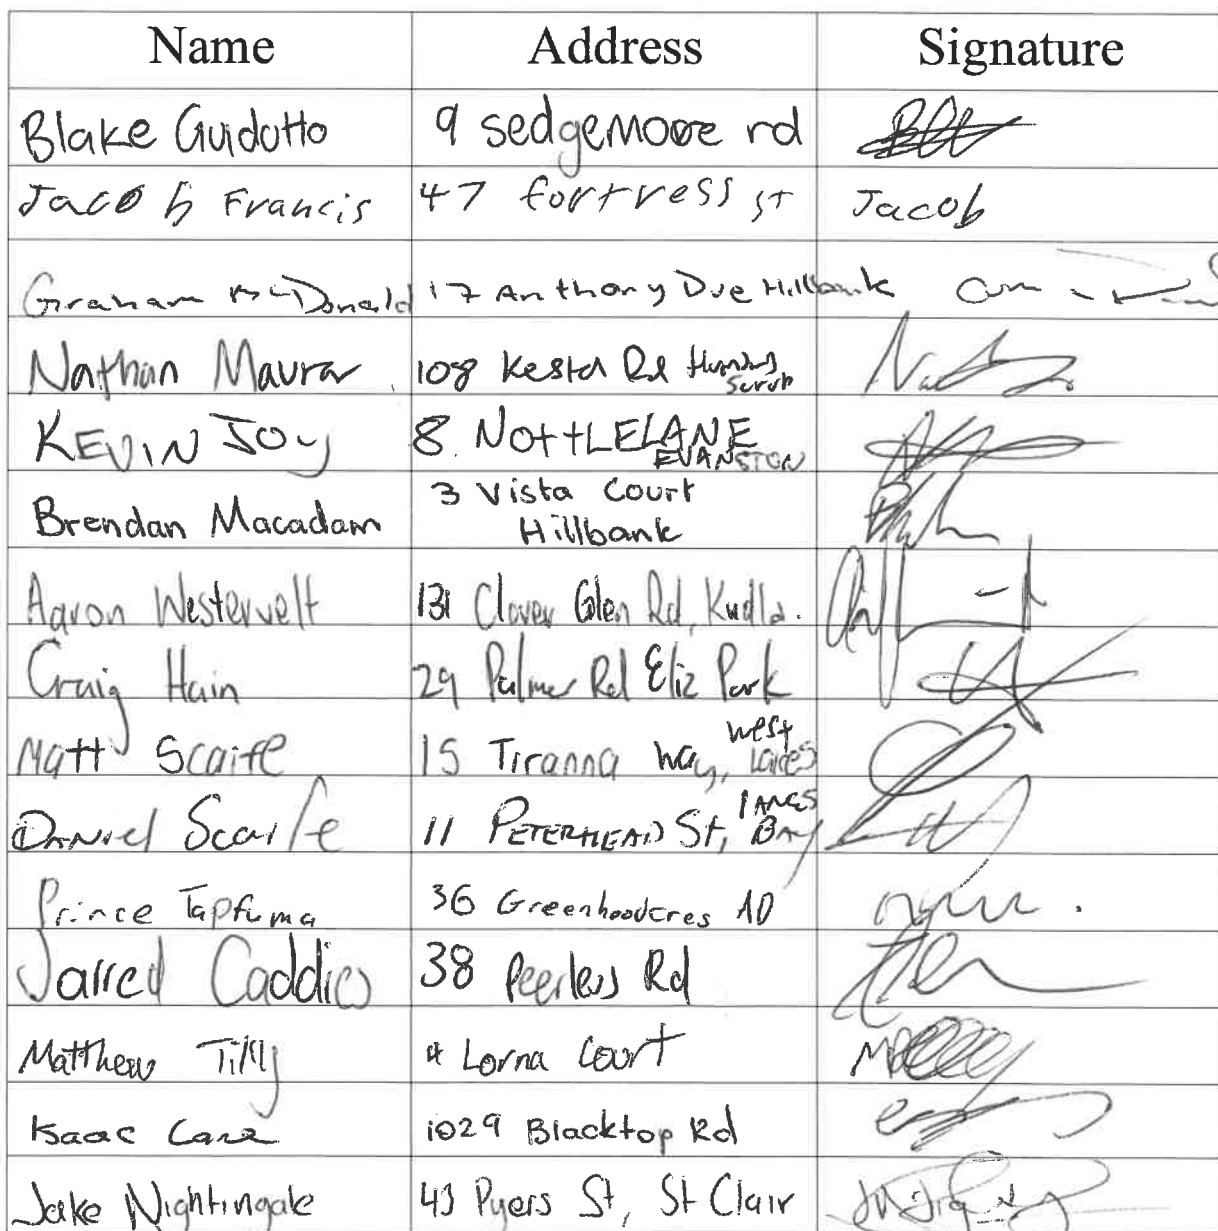 Name Address Signature
Blake Guidotto 9 sedgemoore rd
Jacob Francis 47 fortress st Jacob
Graham McDonald 17 Anthony Dve Hillbank
Nathan 108 Rd
KEVIN JOY 8 NOTTLE LANE
EVANSTON
Brendan Macadam 3 Vista Court
Hillbank
Aaron Westervelt 131 Clover Glen Rd, Kudla.
Craig Hain 29 Palmer Rd Eliz Park
Matt Scaife 15 Tiranna Way, West
Lakes
Daniel Scaife 11 PETERHEAD St, LARGS
BAY
Prince Tapfuma 36
Jarred 38 Peerless Rd
Matthew Tilly 4 Lorna Court
Isaac 1029 Blacktop Rd
Jake Nightingale 43 Pyers St, St Clair